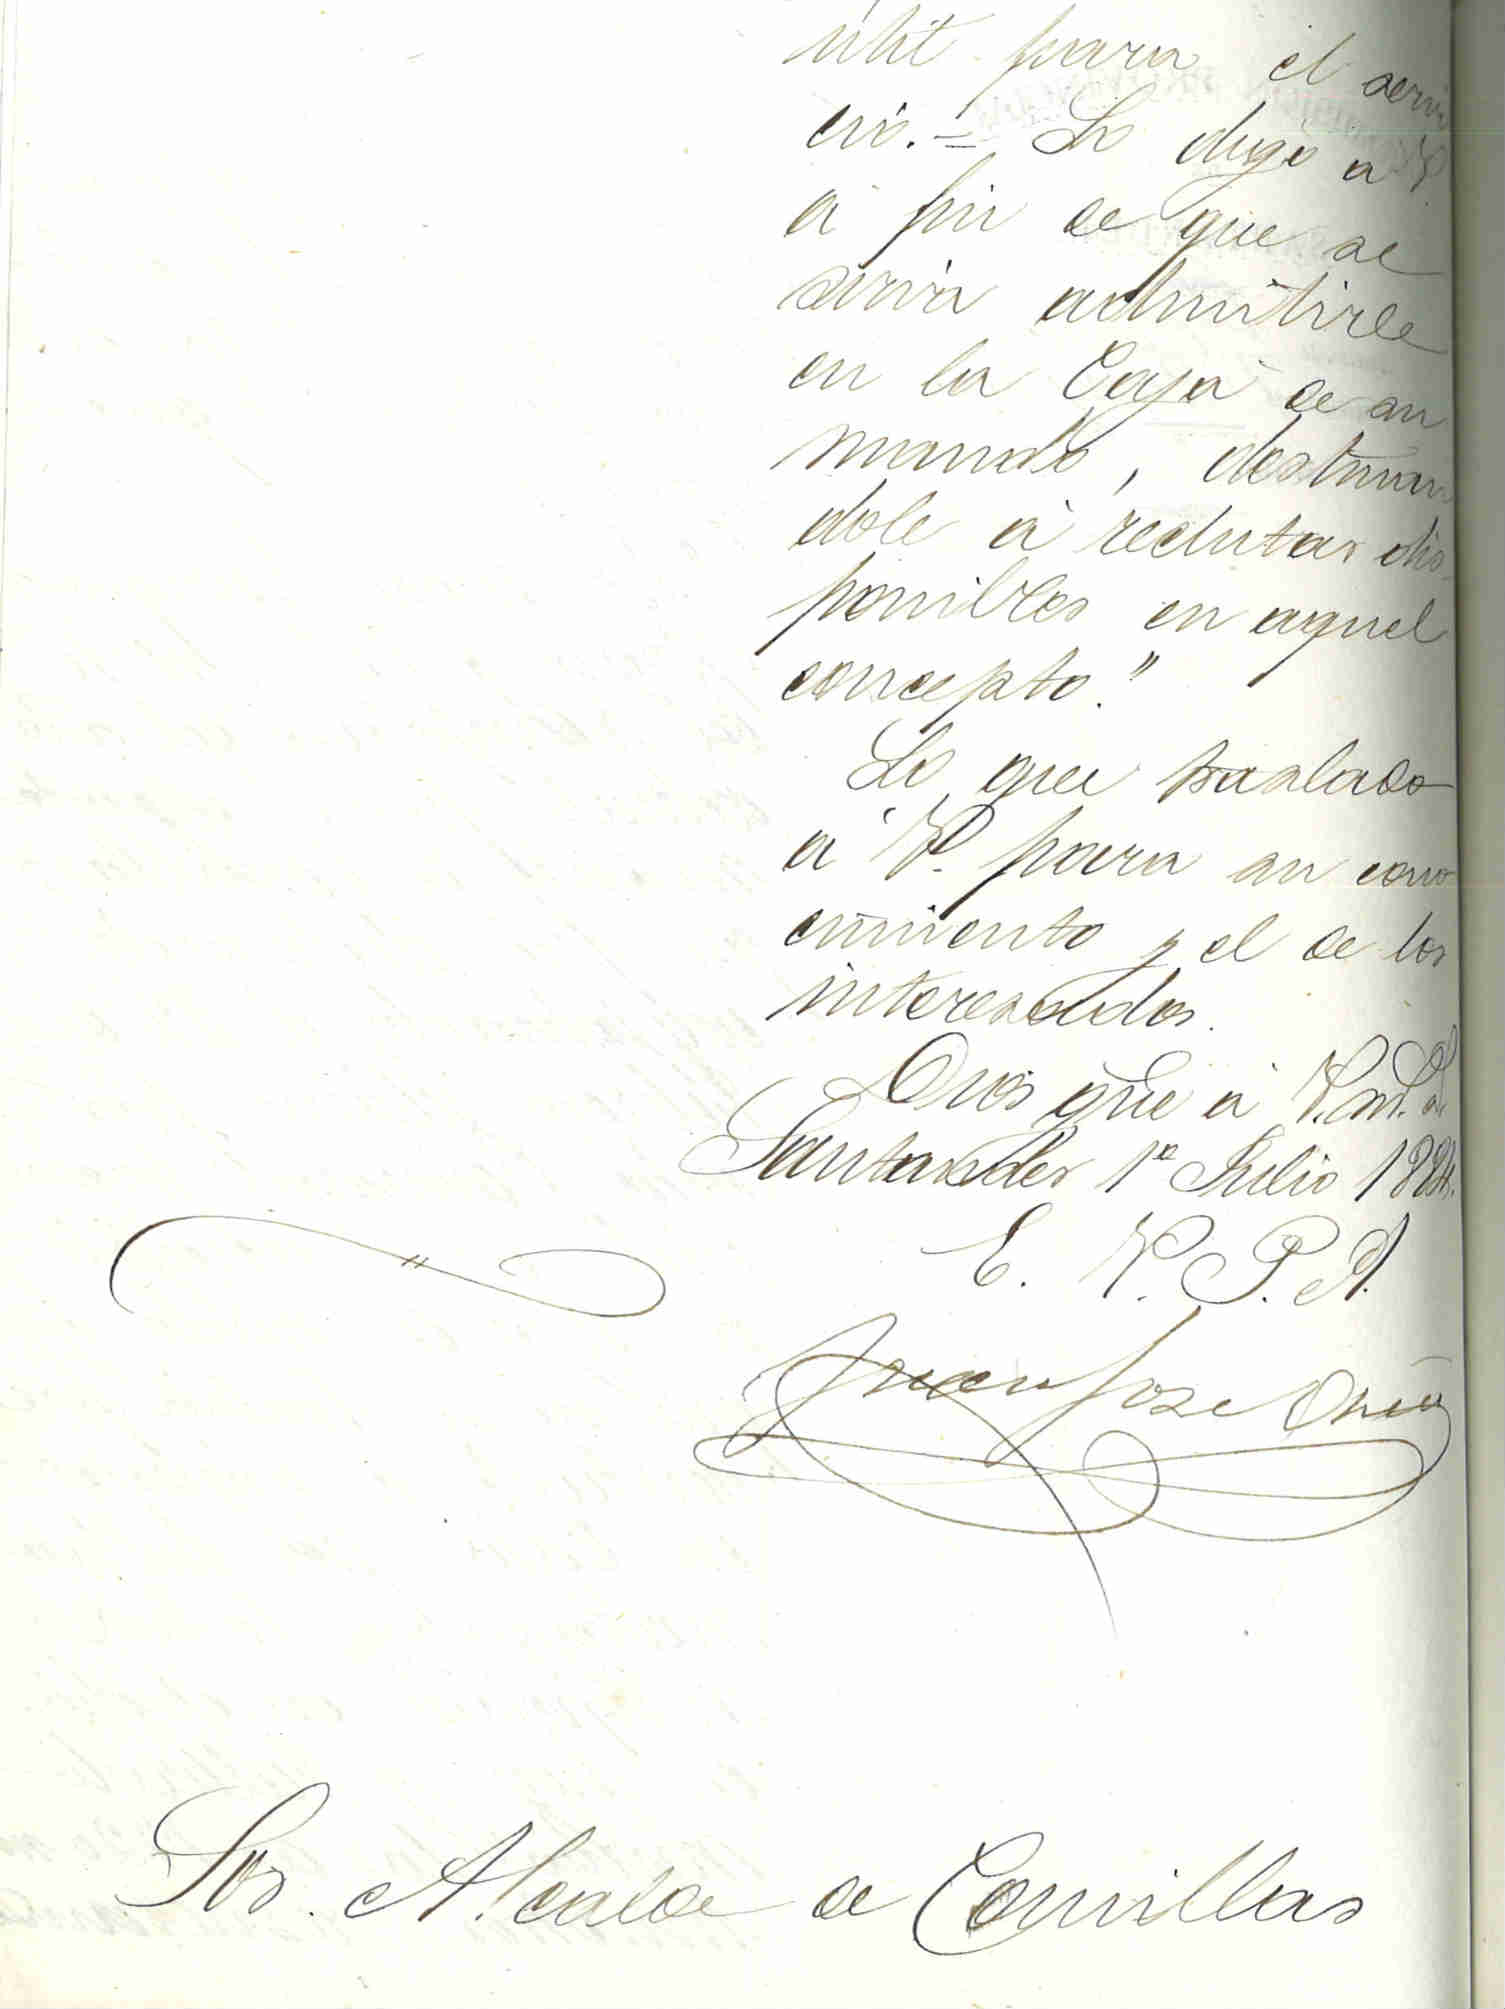 útil para el servi
cio.= Lo digo a V.
á fin de que se
sirva admitirle
en la Caja de su
mando, destinan
dole á reclutas dis-
ponibles en aquel
concepto."
Lo que traslado
á V. para su cono
cimiento y el de los
interesados.
Dios gue á V. m. a.
Santander 1º Julio 1884.
E. V. P. A.
Juan José Oria
Sor. Alcalde de Comillas